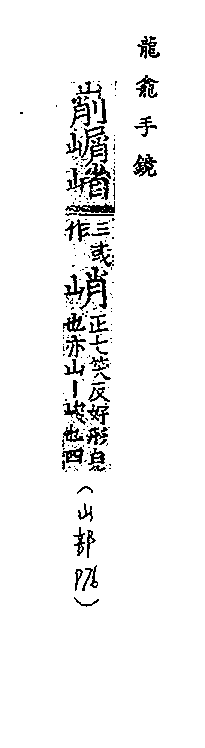 龍龕手鏡
三或
作
峭
正七笑反好形皃
也亦山丨峻也四
(山部 P76)